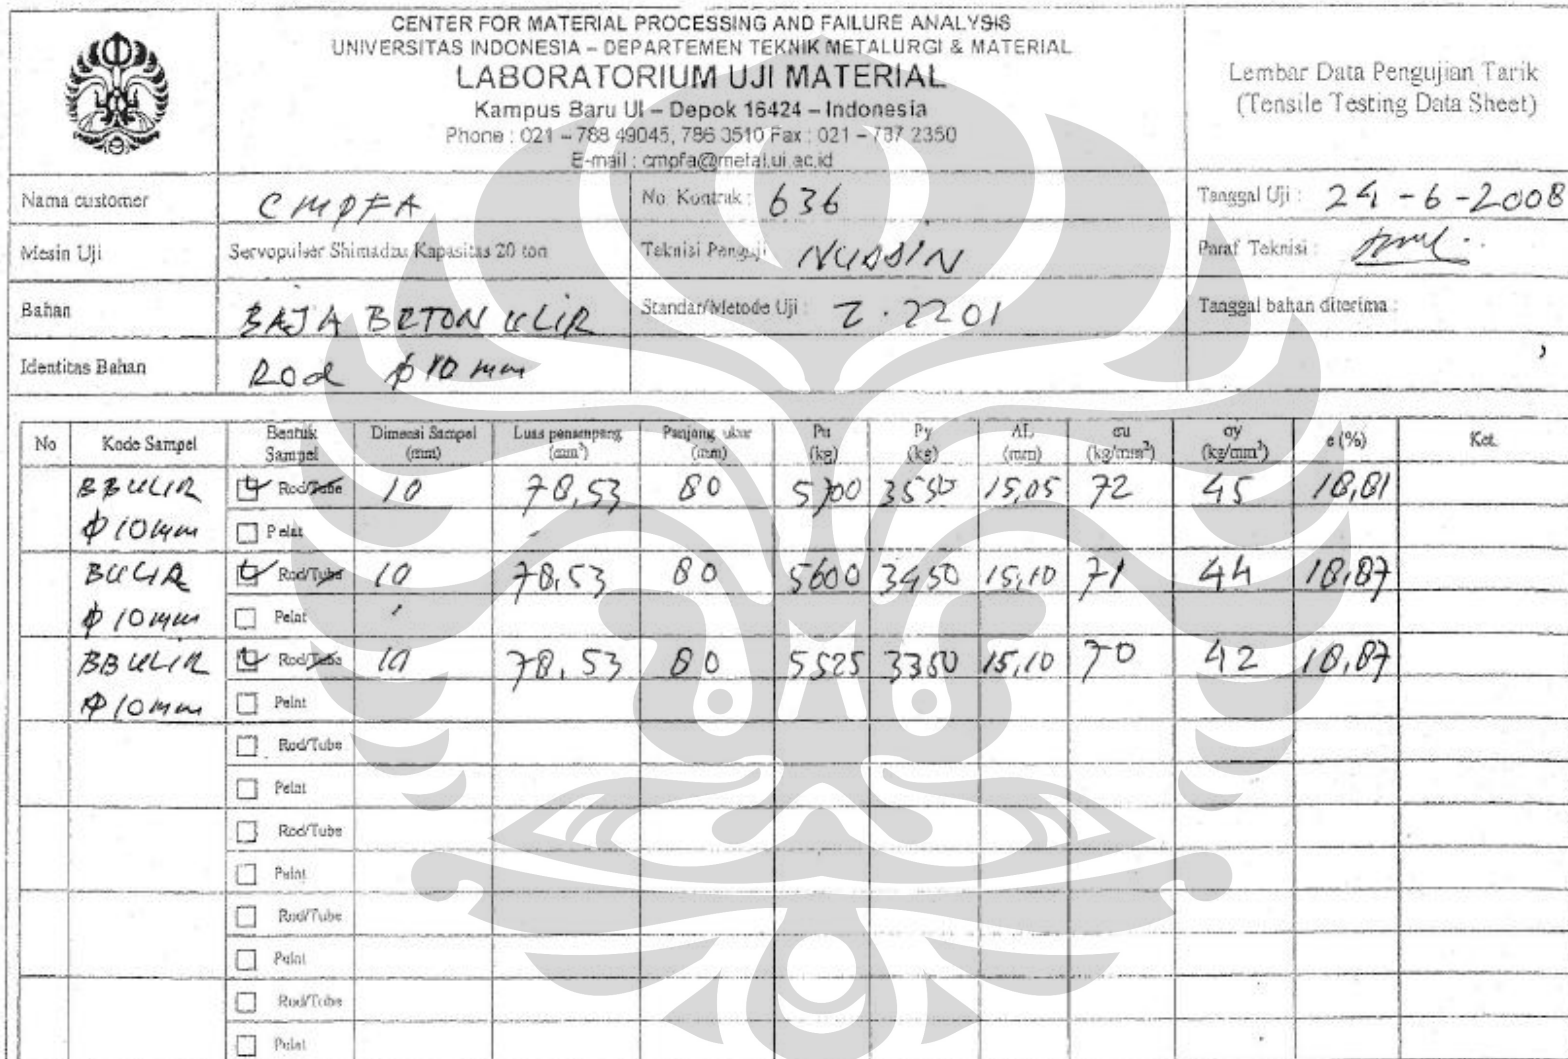 CENTER FOR MATERIAL PROCESSING AND FAILURE ANALYSIS
UNIVERSITAS INDONESIA – DEPARTEMEN TEKNIK METALURGI & MATERIAL
LABORATORIUM UJI MATERIAL
Kampus Baru UI – Depok 16424 – Indonesia
Phone : 021 – 788 49045, 786 3510 Fax : 021 – 787 2350
E-mail : cmpfa@metal.ui.ac.id
Lembar Data Pengujian Tarik
(Tensile Testing Data Sheet)
Nama customer CMPFA No. Kontrak : 636 Tanggal Uji : 24 - 6 - 2008
Mesin Uji Servopulser Shimadzu Kapasitas 20 ton Teknisi Penguji NUSSIN Paraf Teknisi :
Bahan BAJA BETON ULIR Standar/Metode Uji : Z.2201 Tanggal bahan diterima :
Identitas Bahan Rod φ 10 mm
No Kode Sampel Bentuk Sampel Dimensi Sampel (mm) Luas penampang (mm²) Panjang ukur (mm) Pu (kg) Py (kg) ΔL (mm) σu (kg/mm²) σy (kg/mm²) e (%) Ket.
BB ULIR Rod/Tube 10 78,53 80 5700 3550 15,05 72 45 18,81
φ 10 mm Pelat
B ULIR Rod/Tube 10 78,53 80 5600 3450 15,10 71 44 18,87
φ 10 mm Pelat
BB ULIR Rod/Tube 10 78,53 80 5525 3350 15,10 70 42 18,87
φ 10 mm Pelat
Rod/Tube
Pelat
Rod/Tube
Pelat
Rod/Tube
Pelat
Rod/Tube
Pelat